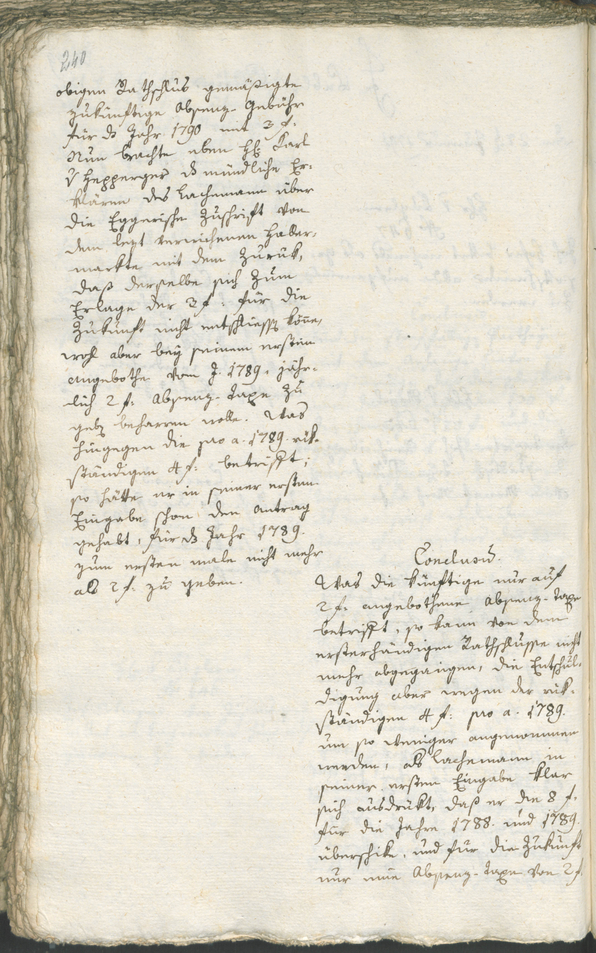 240
obigen Rathschlus gemäßigte
zukünftige Absenz-Gebühr
für ds Jahr 1790 mit 3 f.
Nun brachte eben H: Karl
v Hepperger ds mündliche Er-
klären des Lachemann über
die Eggerische Zuschrift von
dem lezt verwichenen
markte mit dem Zuruk,
daß derselbe sich zum
Erlage der 3 f: für die
Zukunft nicht entschliessen könne,
wohl aber bey seinem ersten
Angebothe vom J. 1789. jähr-
lich 2 f: Absenz-Taxe zu
geben beharren wolle. Was
hingegen die pro a. 1789. rük-
ständigen 4 f: betrifft;
so hätte er in seiner ersten
Eingabe schon den Antrag
gehabt, für ds Jahr 1789.
zum ersten male nicht mehr
als 2 f: zu geben.
Conclusum.
Was die künftige nur auf
2 f: angebothene Absenz-Taxe
betrifft, so kann von dem
ersterhändigen Rathschlusse nicht
mehr abgegangen, die Entschul-
digung aber wegen der rük-
ständigen 4 f: pro a. 1789.
um so weniger angenommen
werden, als Lachemann in
seiner ersten Eingabe klar
sich ausdrukt, daß er die 8 f.
für die Jahre 1788. und 1789.
überschike, und für die Zukunft
nur eine Absenz-Taxe von 2 f.